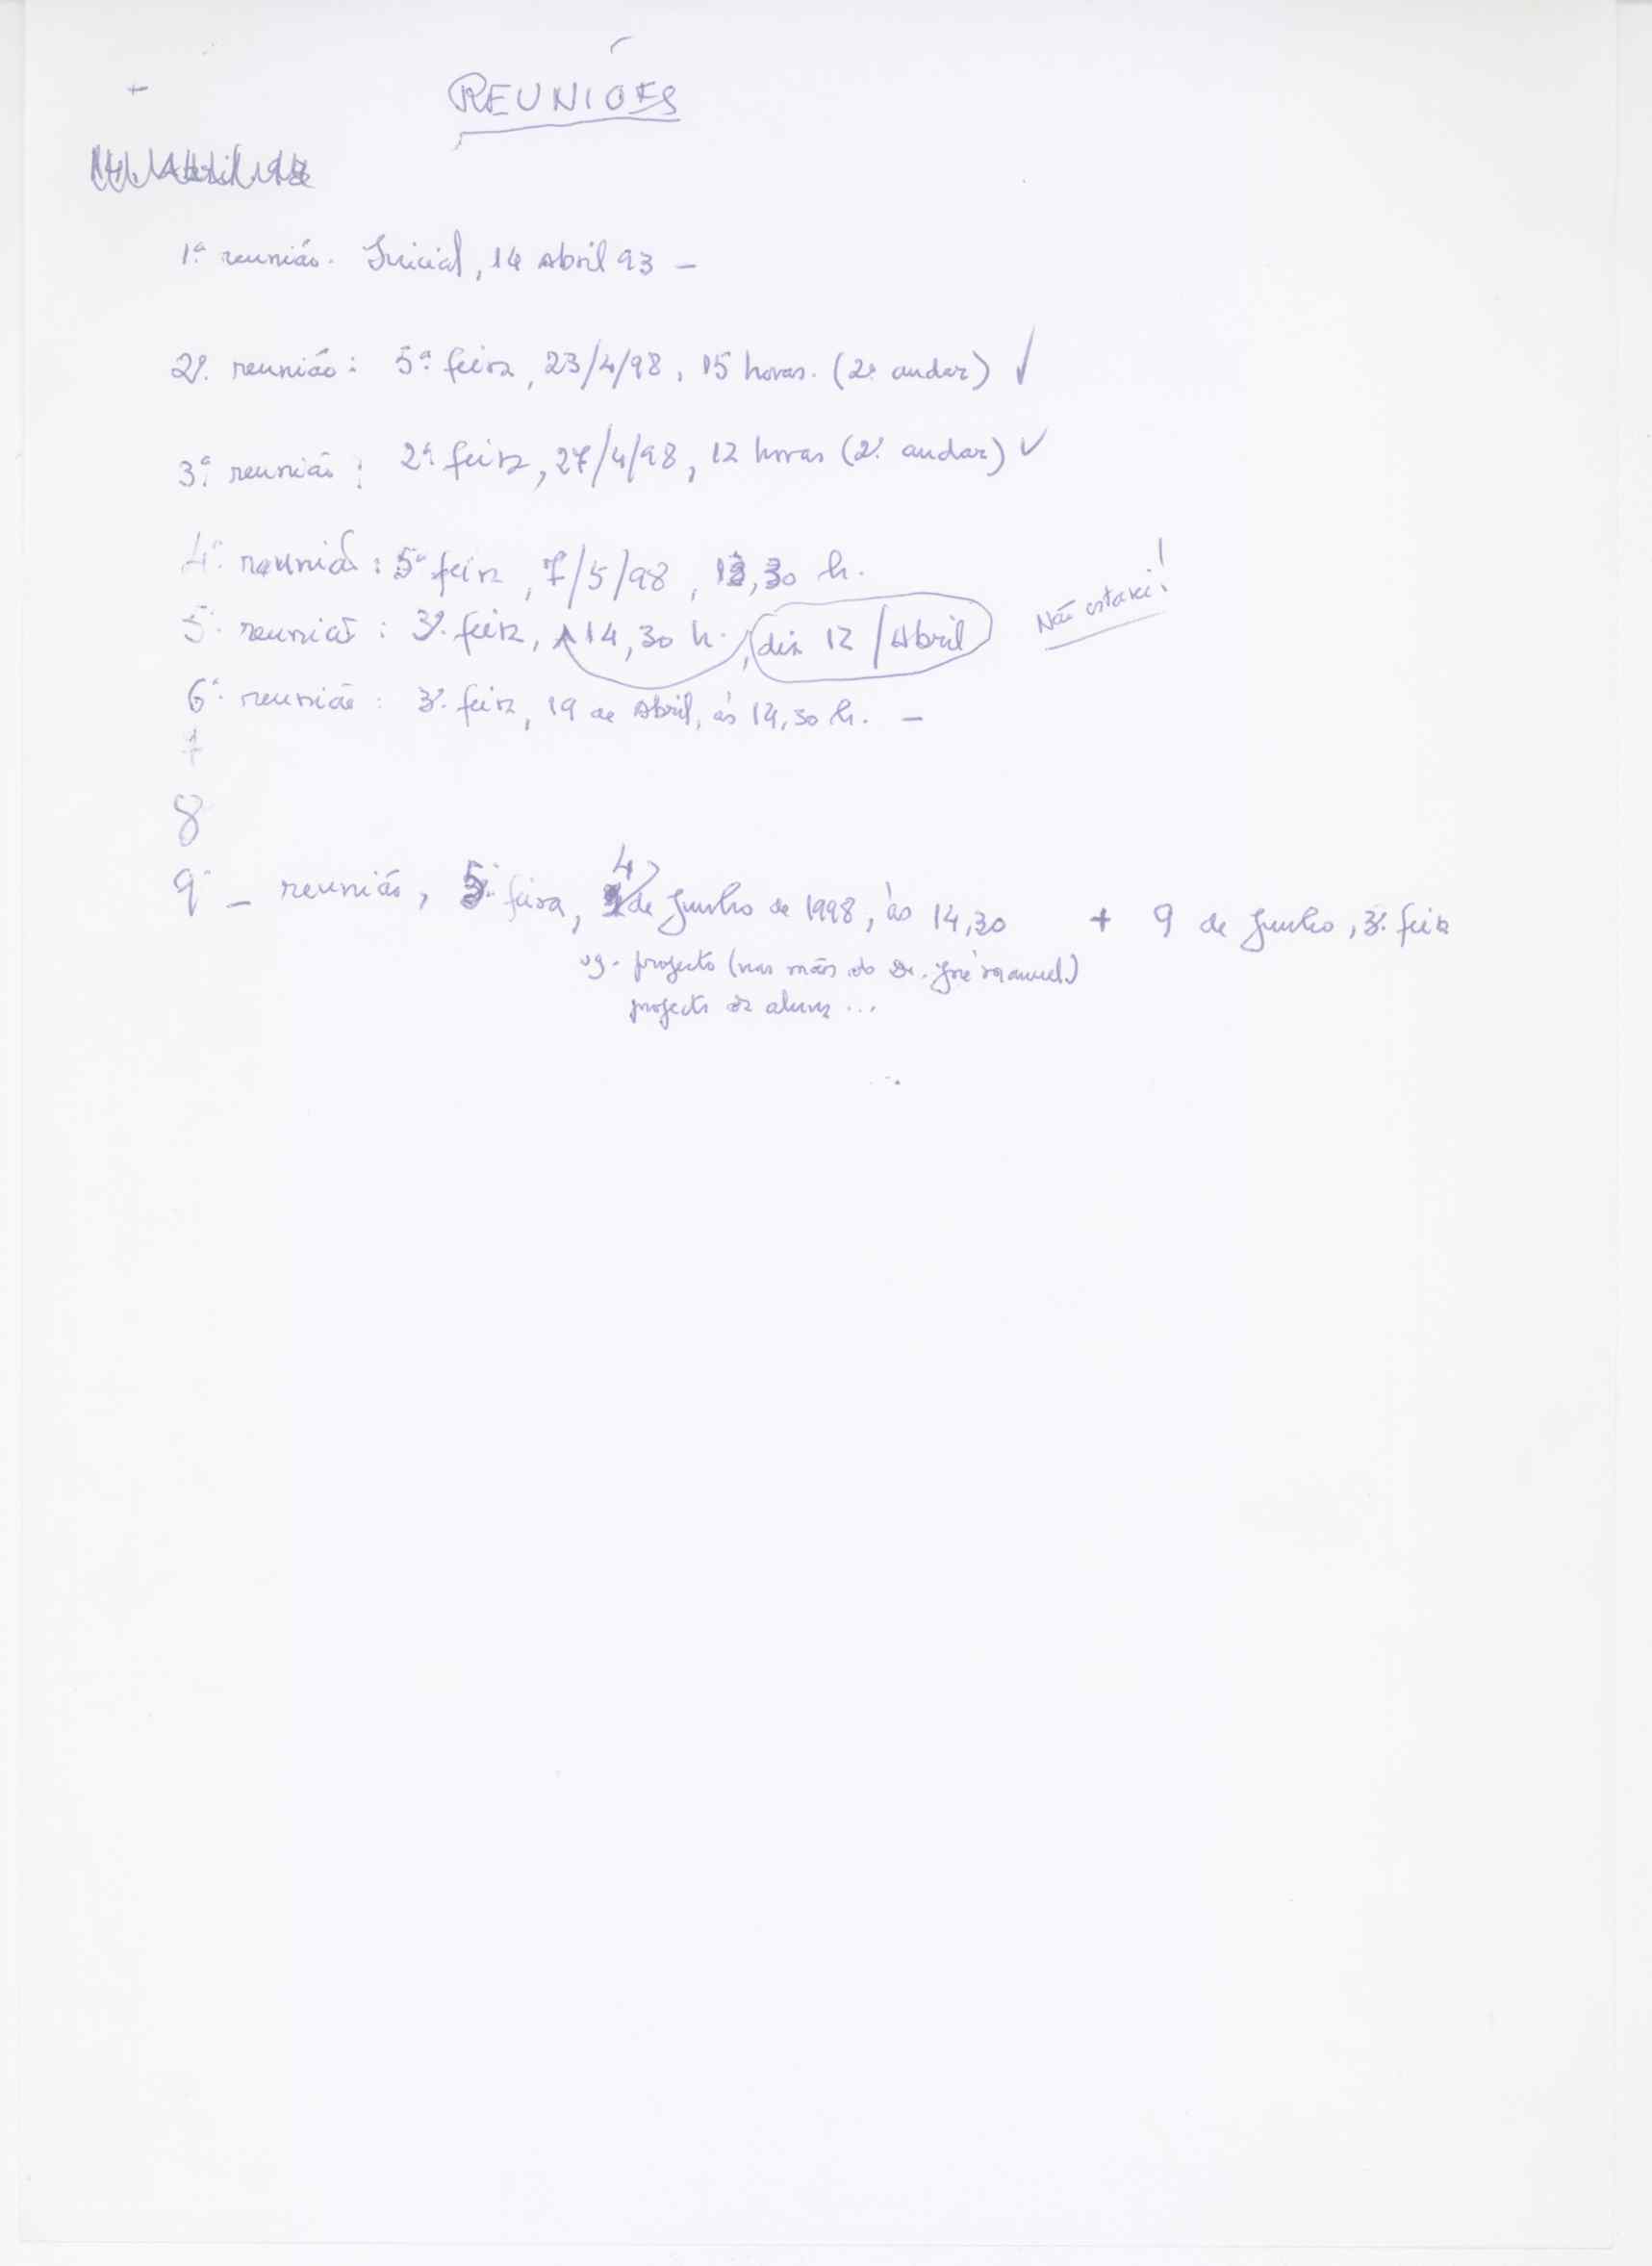 REUNIÕES
1ª reunião. Inicial, 14 Abril 93 -
2ª. reunião: 5ª feira, 23/4/98, 15 horas. (2º andar) ✓
3ª. reunião: 2ª feira, 27/4/98, 12 horas (2º andar) ✓
4ª. reunião: 5ª feira, 7/5/98, 30 h.
5ª. reunião: 3ª. feira, 14,30 h., dia 12 / Abril Não estarei!
6ª. reunião: 3ª. feira, 19 de Abril, às 14,30 h. -
7
8
9ª - reunião, 5ª. feira, 4 de Junho de 1998, às 14,30 + 9 de Junho, 3ª. feira
projecto (nas mãos do Dr. José Manuel)
projecto da aluna ...